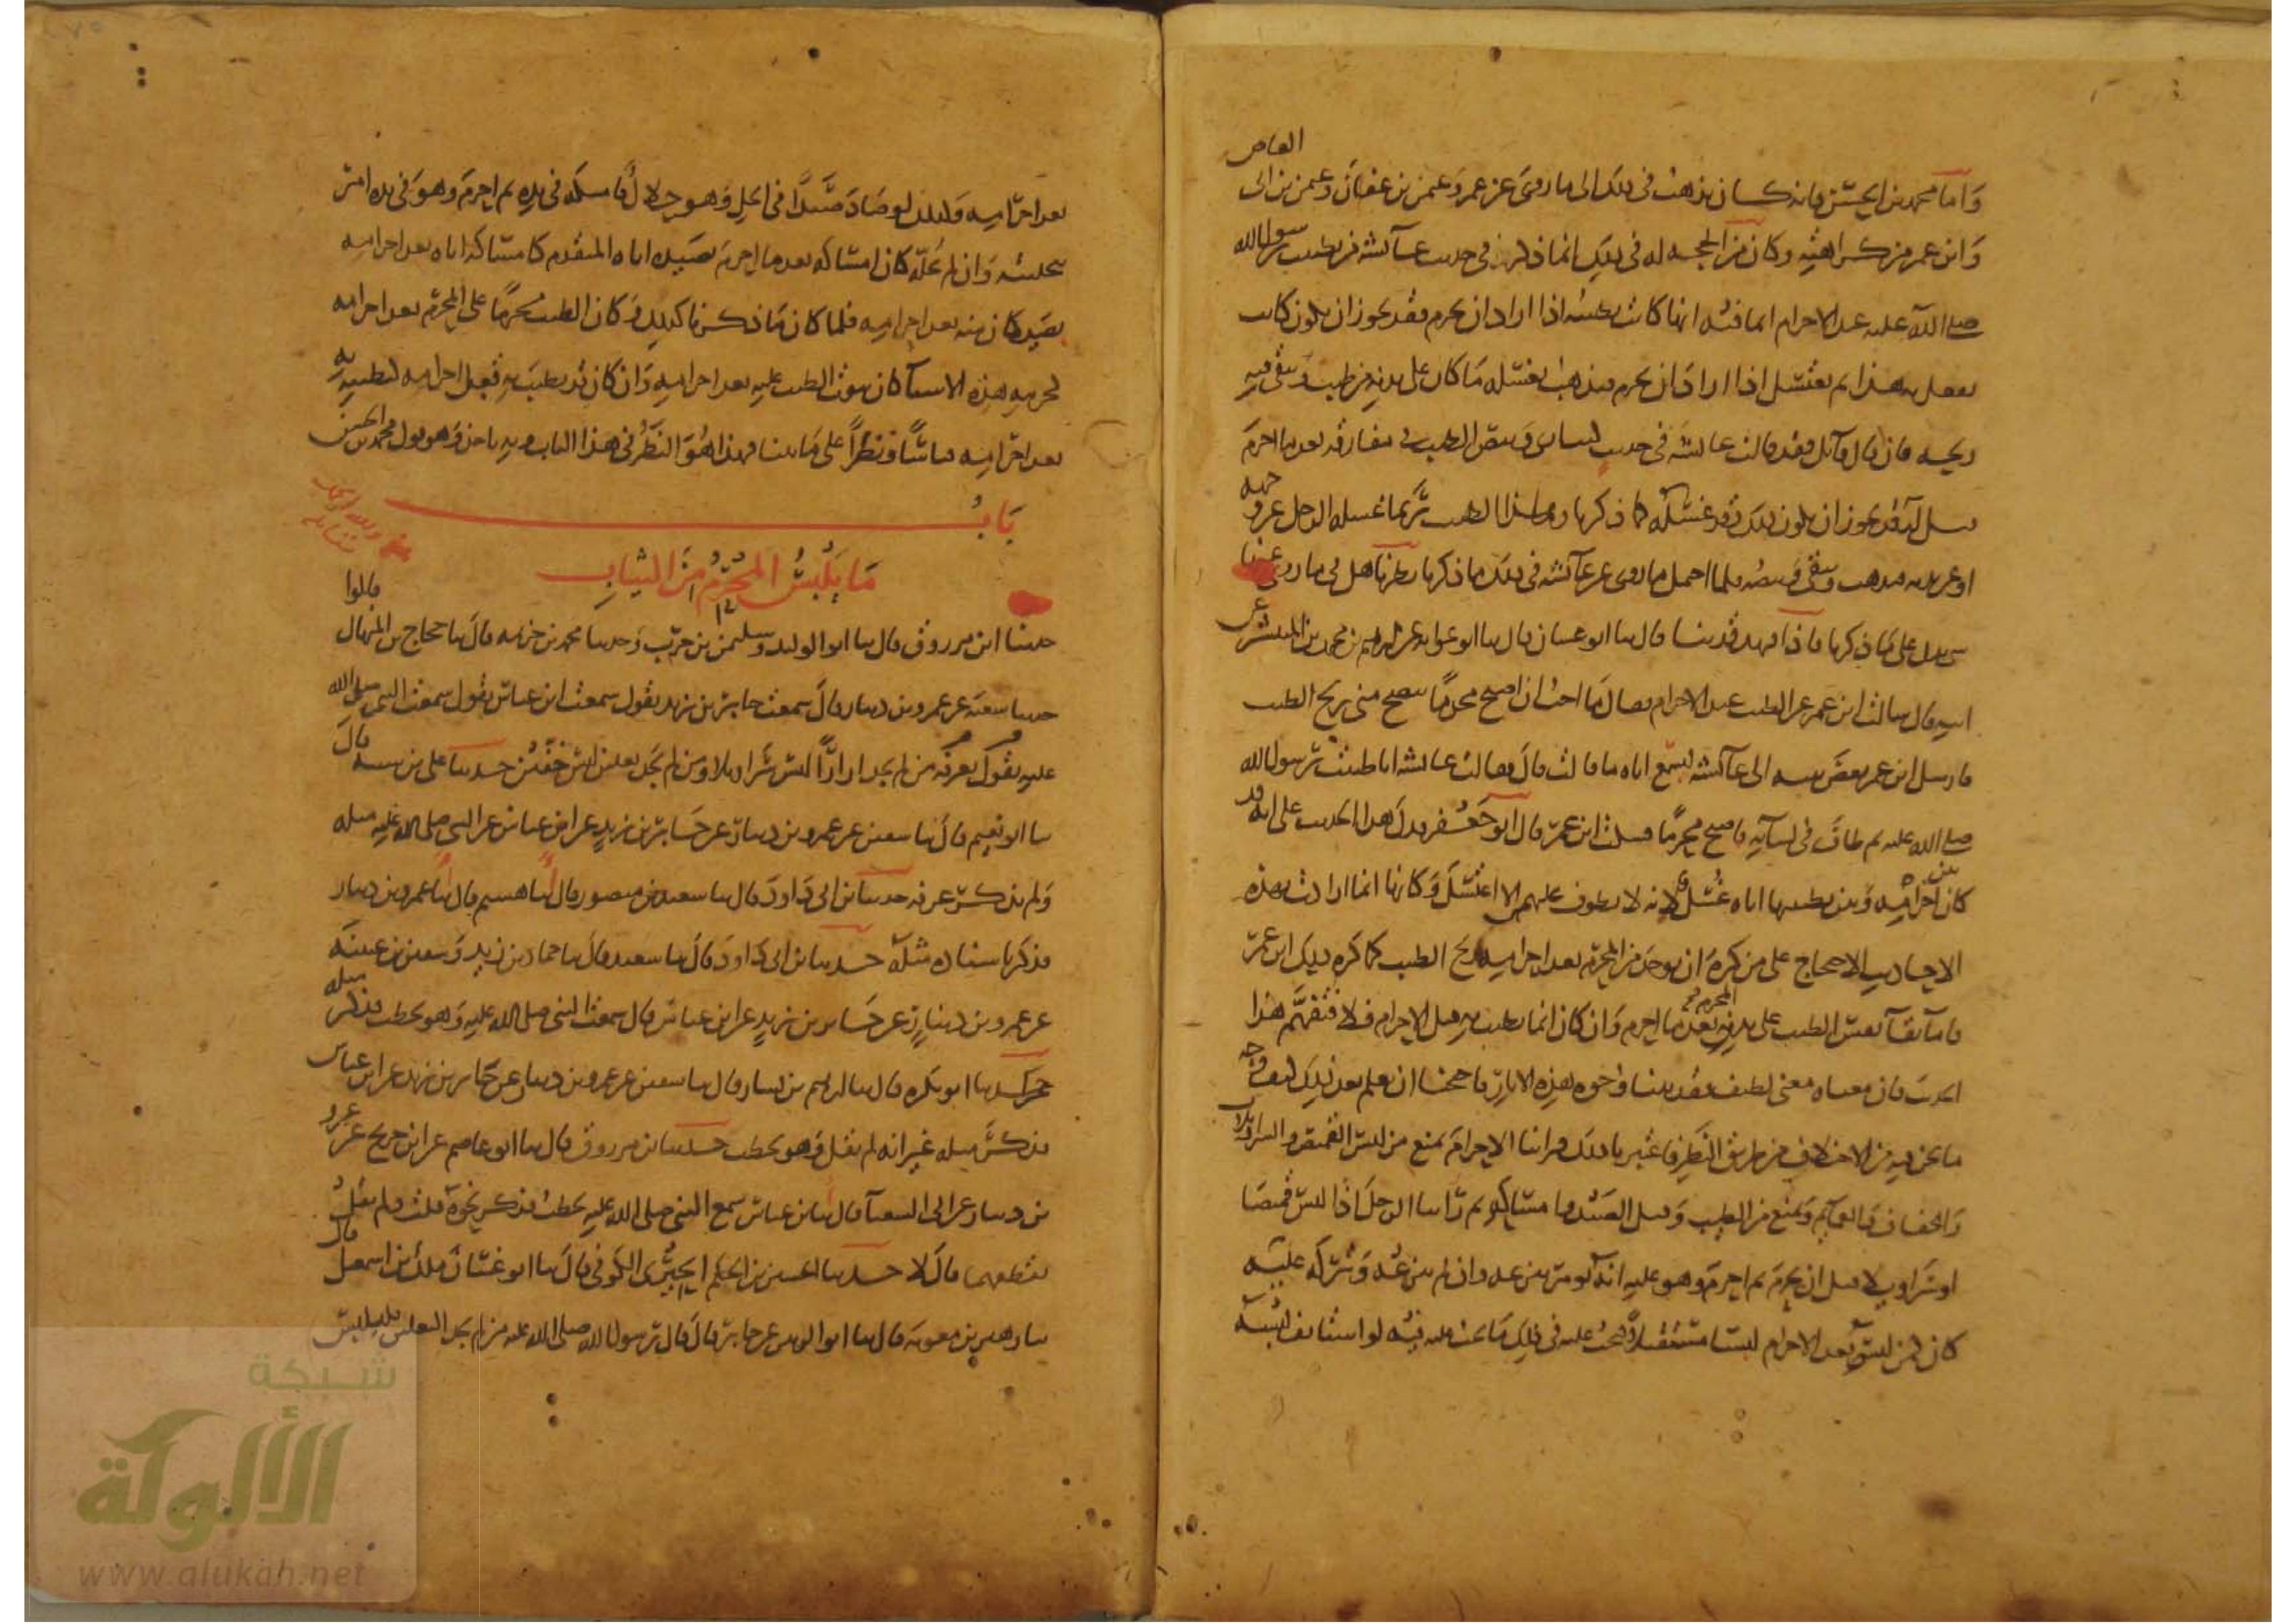 العاص
وَاما محمد بن الحسن فانه كان يذهب في ذلك الى ما روي عن عمر وعثمن بن عفان وعثمن بن ابي
وَابن عمر من كراهته وكان من الحجه له في ذلك ان ما ذكر في حديث عائشه من تطييب رسول الله
صلى الله عليه عند الاحرام انما فيه انها كانت تطيبه اذا اراد ان يحرم فقد يجوز ان يكون كانت
تفعل به هذا ثم يغتسل اذا اراد ان يحرم فيذهب بغسله ما كان على بدنه من طيب ويبقى فيه
ريحه فان قال قائل فقد قالت عائشه في حديث كنت ارى وبيص الطيب في مفارقه بعد ما احرم
قيل له قد يجوز ان يكون ذلك وقد غسله كما ذكرنا وهكذا الطيب ربما غسله الرجل عن وجهه
او عن يده فيذهب ويبقى وبيصه فلما احتمل ما روي عن عائشه في ذلك ما ذكرنا نظرنا هل فيما روي عنها
شي يدل على ما ذكرنا فاذا فهد قد حدثنا قال ثنا ابو غسان قال ثنا ابو عوانه عن ابرهيم بن محمد بن المنتشر عن
ابيه قال سالت ابن عمر عن الطيب عند الاحرام فقال ما احب ان اصبح محرمًا ينضح مني ريح الطيب
فارسل ابن عمر بعض بنيه الى عائشه ليسمع اباه ما قالت قال فقالت عائشه انا طيبت رسول الله
صلى الله عليه ثم طاف في نسائه فاصبح محرمًا فسكت ابن عمر قال ابو جعفر فدل هذا الحديث على انه قد
كان بين احرامه وبين تطييبها اياه غسل لانه لا يطوف عليهن الا اغتسل وكانها انما ارادت بهذه
الاحاديث الاحتجاج على من كره ان يوجد من المحرم بعد احرامه ريح الطيب كما كره ذلك ابن عمر
فاما بقآ نفس الطيب على بدن المحرم بعد ما احرم وان كان انما تطيب به قبل الاحرام فلا فتفهم هذا
الحديث فان معناه معنى لطيف فقد بينا وجوه هذه الاثار فاحتجنا ان نعلم بعد ذلك كيف وجه
ما نحن فيه من الاختلاف من طريق النظر فاعتبرنا ذلك فراينا الاحرام يمنع من لبس القميص والسراويلات
والخفاف والعمائم ويمنع من الطيب وقتل الصيد وامساكه ثم راينا الرجل اذا لبس قميصا
او سراويل قبل ان يحرم ثم احرم وهو عليه انه يومر بنزعه وان لم ينزعه وتركه عليه
كان كمن لبسه بعد الاحرام لبسا مستقبلا فيجب عليه في ذلك ما يجب عليه فيه لو استانف لبسه
بعد احرامه وكذلك لو صاد صيدًا في الحل وهو حلال فامسكه في يده ثم احرم وهو في يده امر
بتخليته وان لم يخله كان امساكه بعد ما احرم بصيده اياه المتقدم كامساكه اياه بعد احرامه
بصيد كان منه بعد احرامه فلما كان ما ذكرنا كذلك وكان الطيب محرمًا على المحرم بعد احرامه
كحرمة هذه الاشيآ كان ثبوت الطيب عليه بعد احرامه وان كان قد تطيب به قبل احرامه كتطييبه به
بعد احرامه قياسًا ونظرًا على ما بينا فهذا هو النظر في هذا الباب وبه ناخذ وهو قول محمد بن الحسن
بَابُ
مَا يَلْبَسُ المُحْرِمُ مِنَ الثيابِ
حدثنا ابن مرزوق قال ثنا ابو الوليد وسليمن بن حرب وحدثنا محمد بن خزيمه قال ثنا حجاج بن المنهال قالوا
حدثنا شعبه عن عمرو بن دينار قال سمعت جابر بن زيد يقول سمعت ابن عباس يقول سمعت النبي صلى الله
عليه يقول بعرفه من لم يجد ازارًا لبس سراويلا ومن لم يجد نعلين لبس خفين حدثنا علي بن شيبه قال
ثنا ابو نعيم قال ثنا سفين عن عمرو بن دينار عن جابر بن زيد عن ابن عباس عن النبي صلى الله عليه مثله
ولم يذكر عرفه حدثنا ابن ابي داود قال ثنا سعيد بن منصور قال ثنا هشيم قال انا عمرو بن دينار
فذكر باسناده مثله حدثنا ابن ابي داود قال ثنا سعيد قال ثنا حماد بن زيد وسفين بن عيينه
عن عمرو بن دينار عن جابر بن زيد عن ابن عباس قال سمعت النبي صلى الله عليه وهو يخطب فذكر مثله
حدثنا ابو بكره قال ثنا ابرهيم بن بشار قال ثنا سفين عن عمرو بن دينار عن جابر بن زيد عن ابن عباس
فذكر مثله غير انه لم يقل وهو يخطب حدثنا ابن مرزوق قال ثنا ابو عاصم عن ابن جريج عن عمرو
بن دينار عن ابي الشعثآ قال ثنا ابن عباس سمع النبي صلى الله عليه يخطب فذكر نحوه قلت ولم يقل
يقطعهما قال لا حدثنا الحسين بن الحكم الحبري الكوفي قال ثنا ابو غسان ملك بن اسمعيل قال
ثنا زهير بن معويه قال ثنا ابو الزبير عن جابر قال قال رسول الله صلى الله عليه من لم يجد النعلين فليلبس
شبكة
الألوكة
www.alukah.net